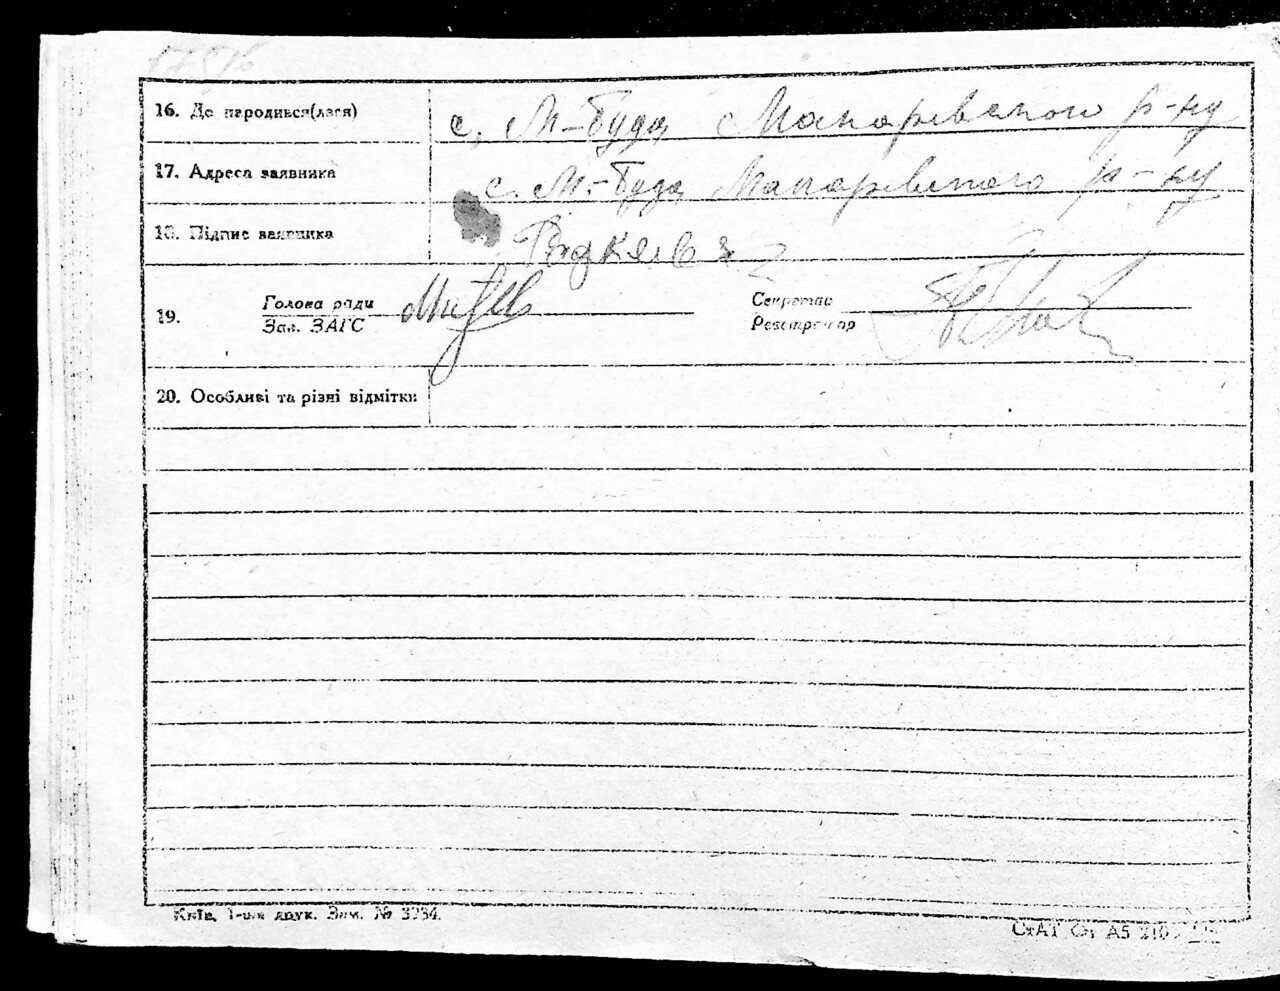 16. Де народився(лася) с. М-Буда Макарівського р-ну
17. Адреса заявника с. М.-Буда Макарівського р-ну
18. Підпис заявника
19. Голова ради Секретар
Зав. ЗАГС Реєстратор
20. Особливі та різні відмітки
Київ, 1-ша друк. Зам. № 3234.
СтАТ Ф. А5 210